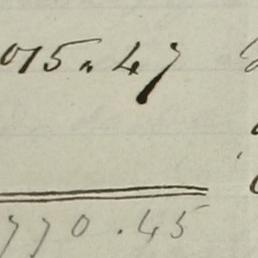 015.47
770.45